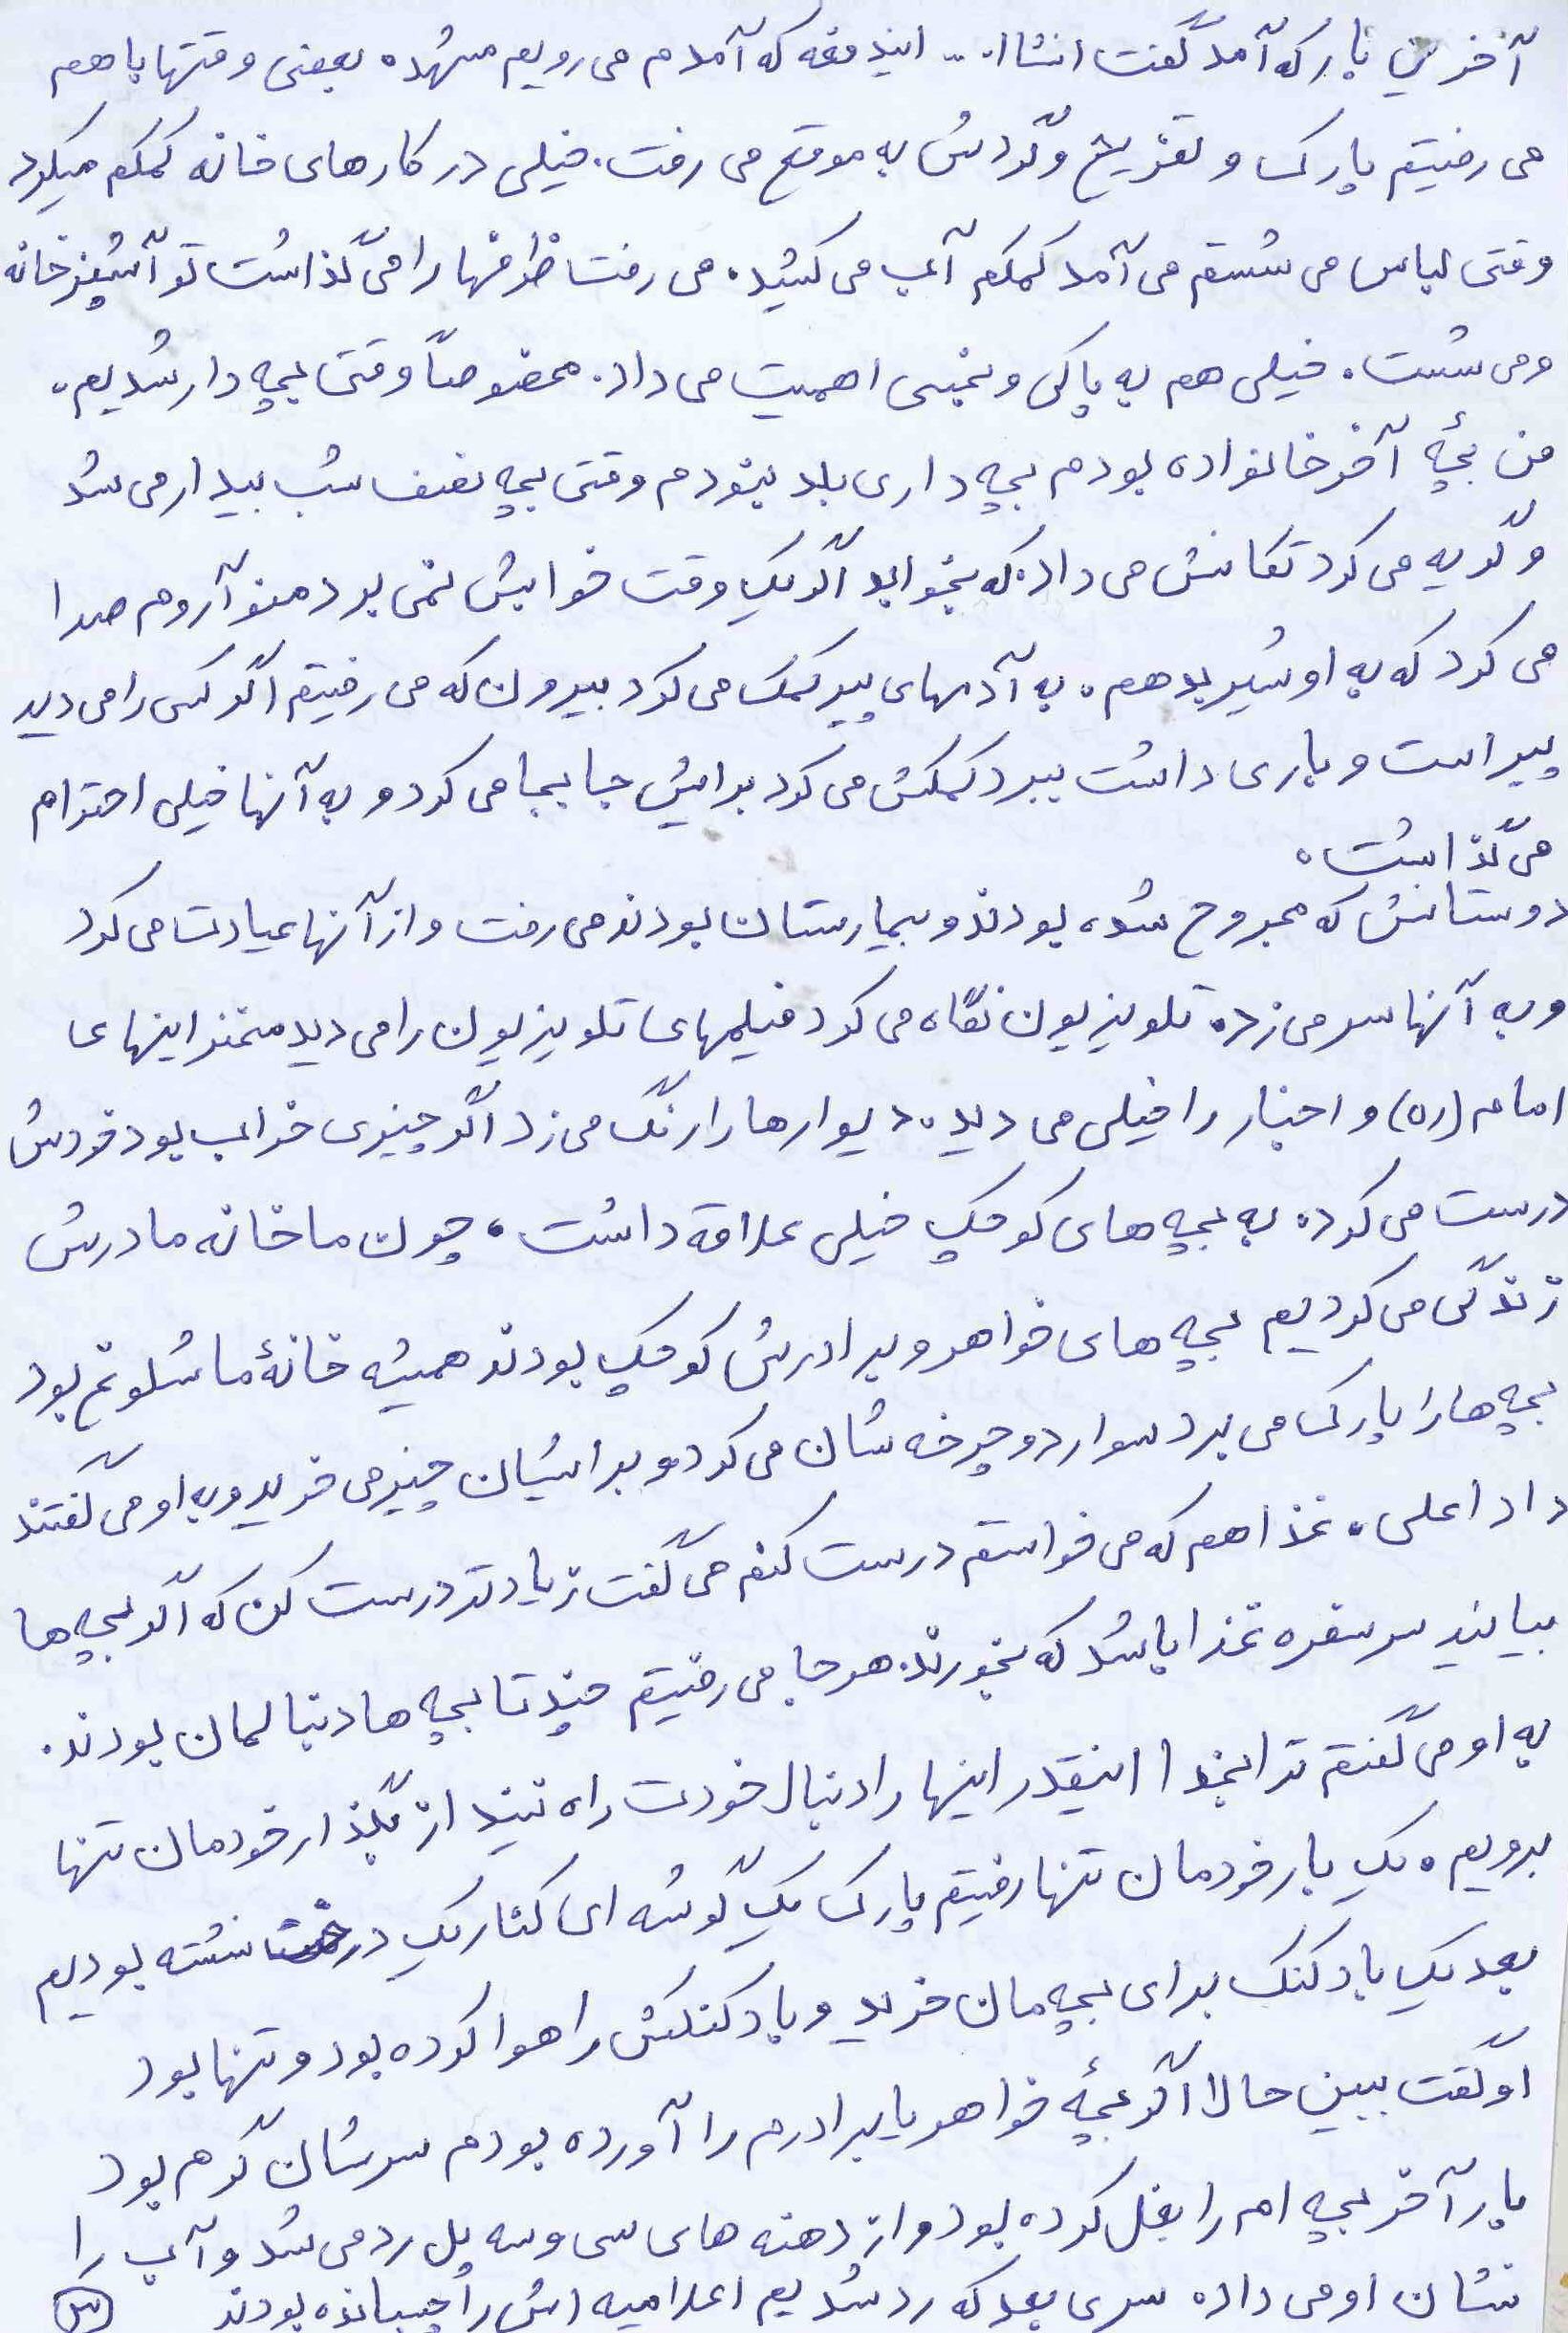 آخرین بار که آمد گفت انشاا... ایندفعه که آمدم می رویم مشهد. بعضی وقتها با هم
می رفتیم پارک و تفریح و گردش به موقع می رفت. خیلی در کارهای خانه کمکم میکرد
وقتی لباس می شستم می آمد کمکم آب می کشید. می رفت ظرفها را می گذاشت تو آشپزخانه
و می شست. خیلی هم به پاکی و نجسی اهمیت می داد. مخصوصاً وقتی بچه دار شدیم.
من بچۀ آخر خانواده بودم بچه داری بلد نبودم وقتی بچه نصف شب بیدار می شد
و گریه می کرد تکانش می داد که بخوابد اگر یک وقت خوابش نمی برد منو آروم صدا
می کرد که به او شیر بدهم. به آدمهای پیر کمک می کرد بیرون که می رفتیم اگر کسی را می دید
پیر است و باری داشت ببرد کمکش می کرد برایش جا بجا می کرد و به آنها خیلی احترام
می گذاشت.
دوستانش که مجروح شده بودند و بیمارستان بودند می رفت و از آنها عیادت می کرد
و به آنها سر می زد. تلویزیون نگاه می کرد فیلمهای تلویزیون را می دید سخنرانیهای
امام (ره) و اخبار را خیلی می دید. دیوارها را رنگ می زد اگر چیزی خراب بود خودش
درست می کرد. به بچه های کوچک خیلی علاقه داشت. چون ما خانه مادرش
زندگی می کردیم بچه های خواهر و برادرش کوچک بودند همیشه خانۀ ما شلوغ بود
بچه ها را پارک می برد سوار دوچرخه شان می کرد و برایشان چیز می خرید و به او می گفتند
داداعلی. غذا هم که می خواستم درست کنم می گفت زیادتر درست کن که اگر بچه ها
بیایند سر سفره غذا باشد که بخورند. هر جا می رفتیم چند تا بچه ها دنبالمان بودند.
به او می گفتم ترا بخدا اینقدر اینها را دنبال خودت راه نینداز بگذار خودمان تنها
برویم. یک بار خودمان تنها رفتیم پارک یک گوشه ای کنار یک درخت نشسته بودیم
بعد یک بادکنک برای بچه مان خرید و بادکنکش را هوا کرده بود و تنها بود
او گفت ببین حالا اگر بچۀ خواهر یا برادرم را آورده بودم سرشان گرم بود
بار آخر بچه ام را بغل کرده بود و از دهنه های سی و سه پل رد می شد و آب را
نشان او می داد. سری بعد که رد شدیم اعلامیه اش را چسبانده بودند